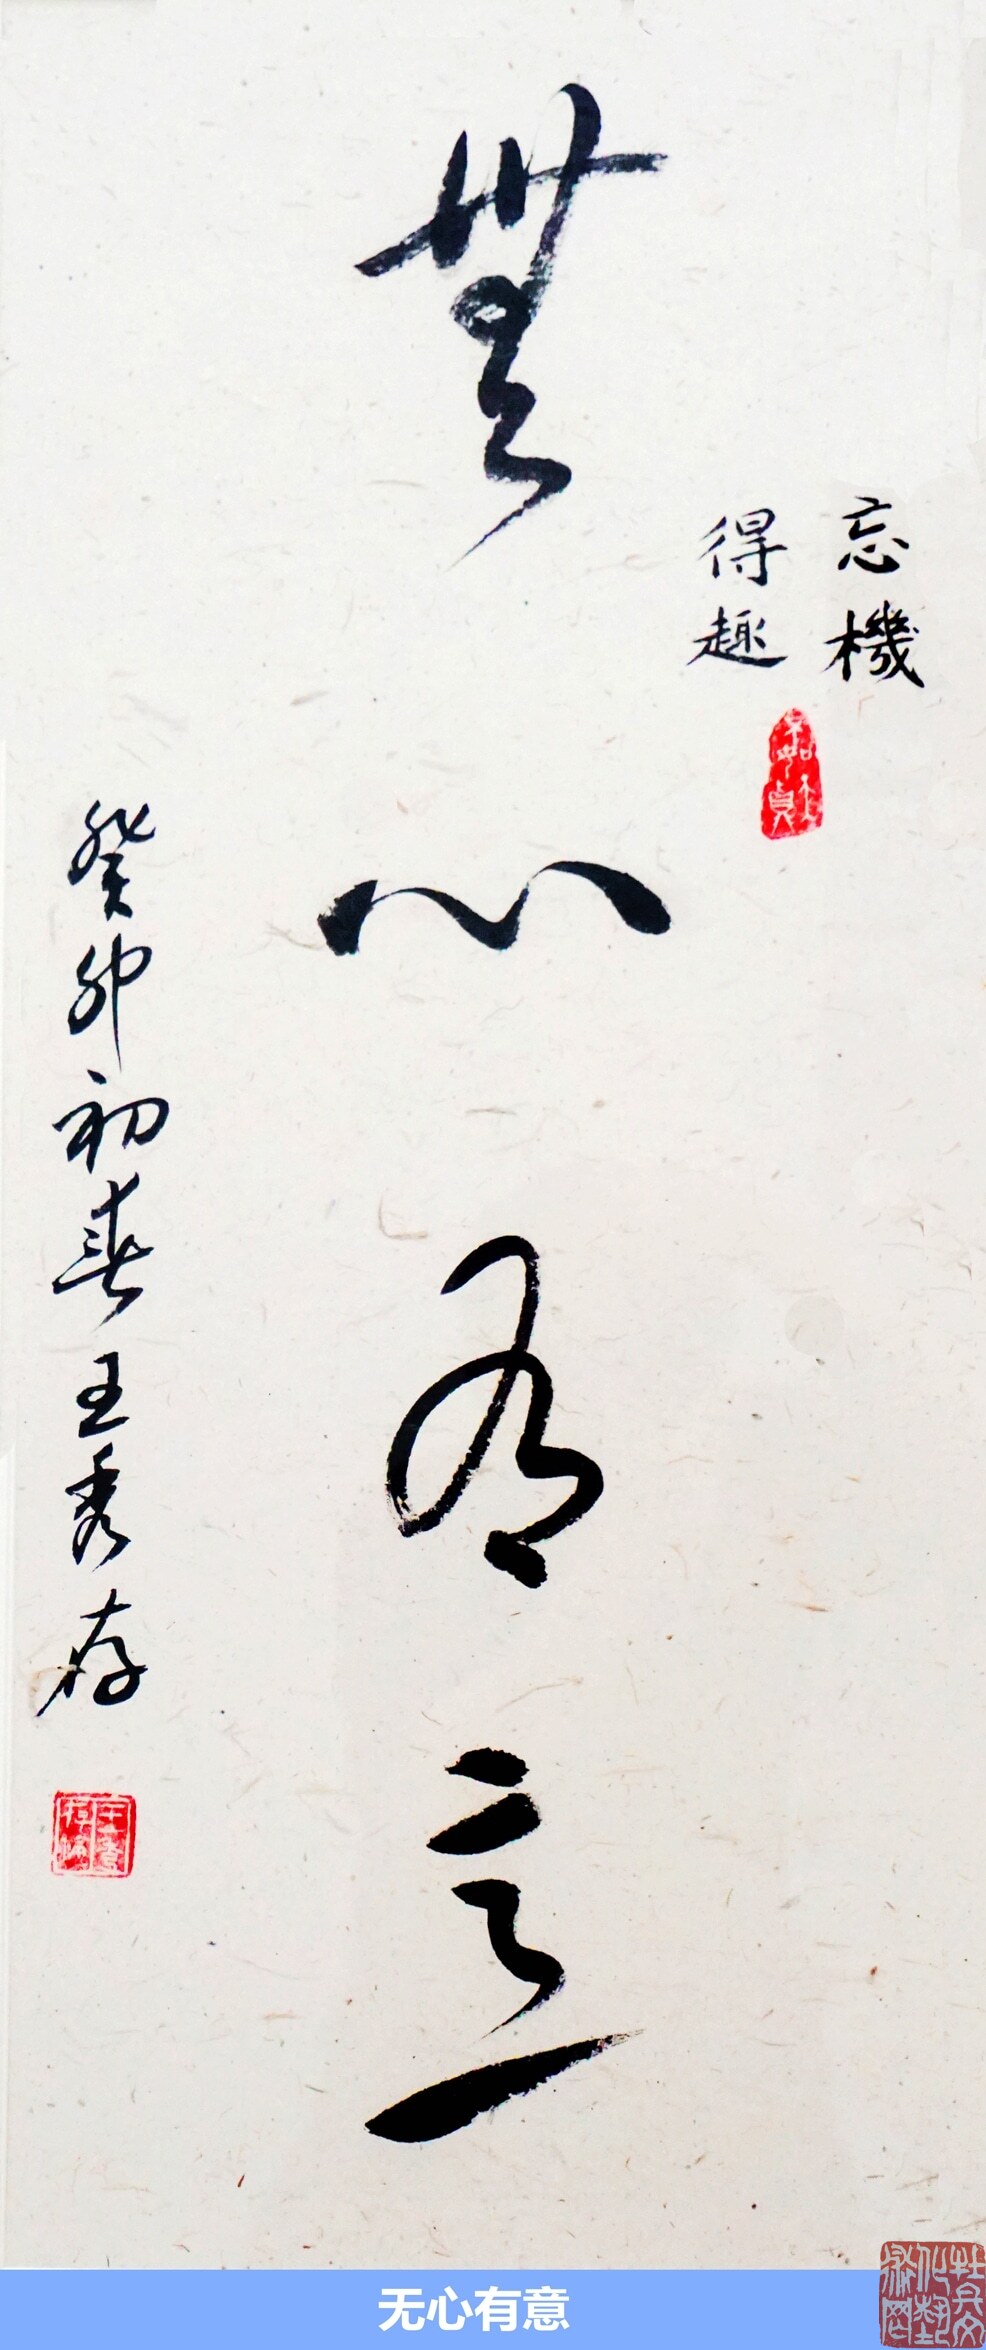 忘機
得趣
無心有意
癸卯初春王秀存
无心有意